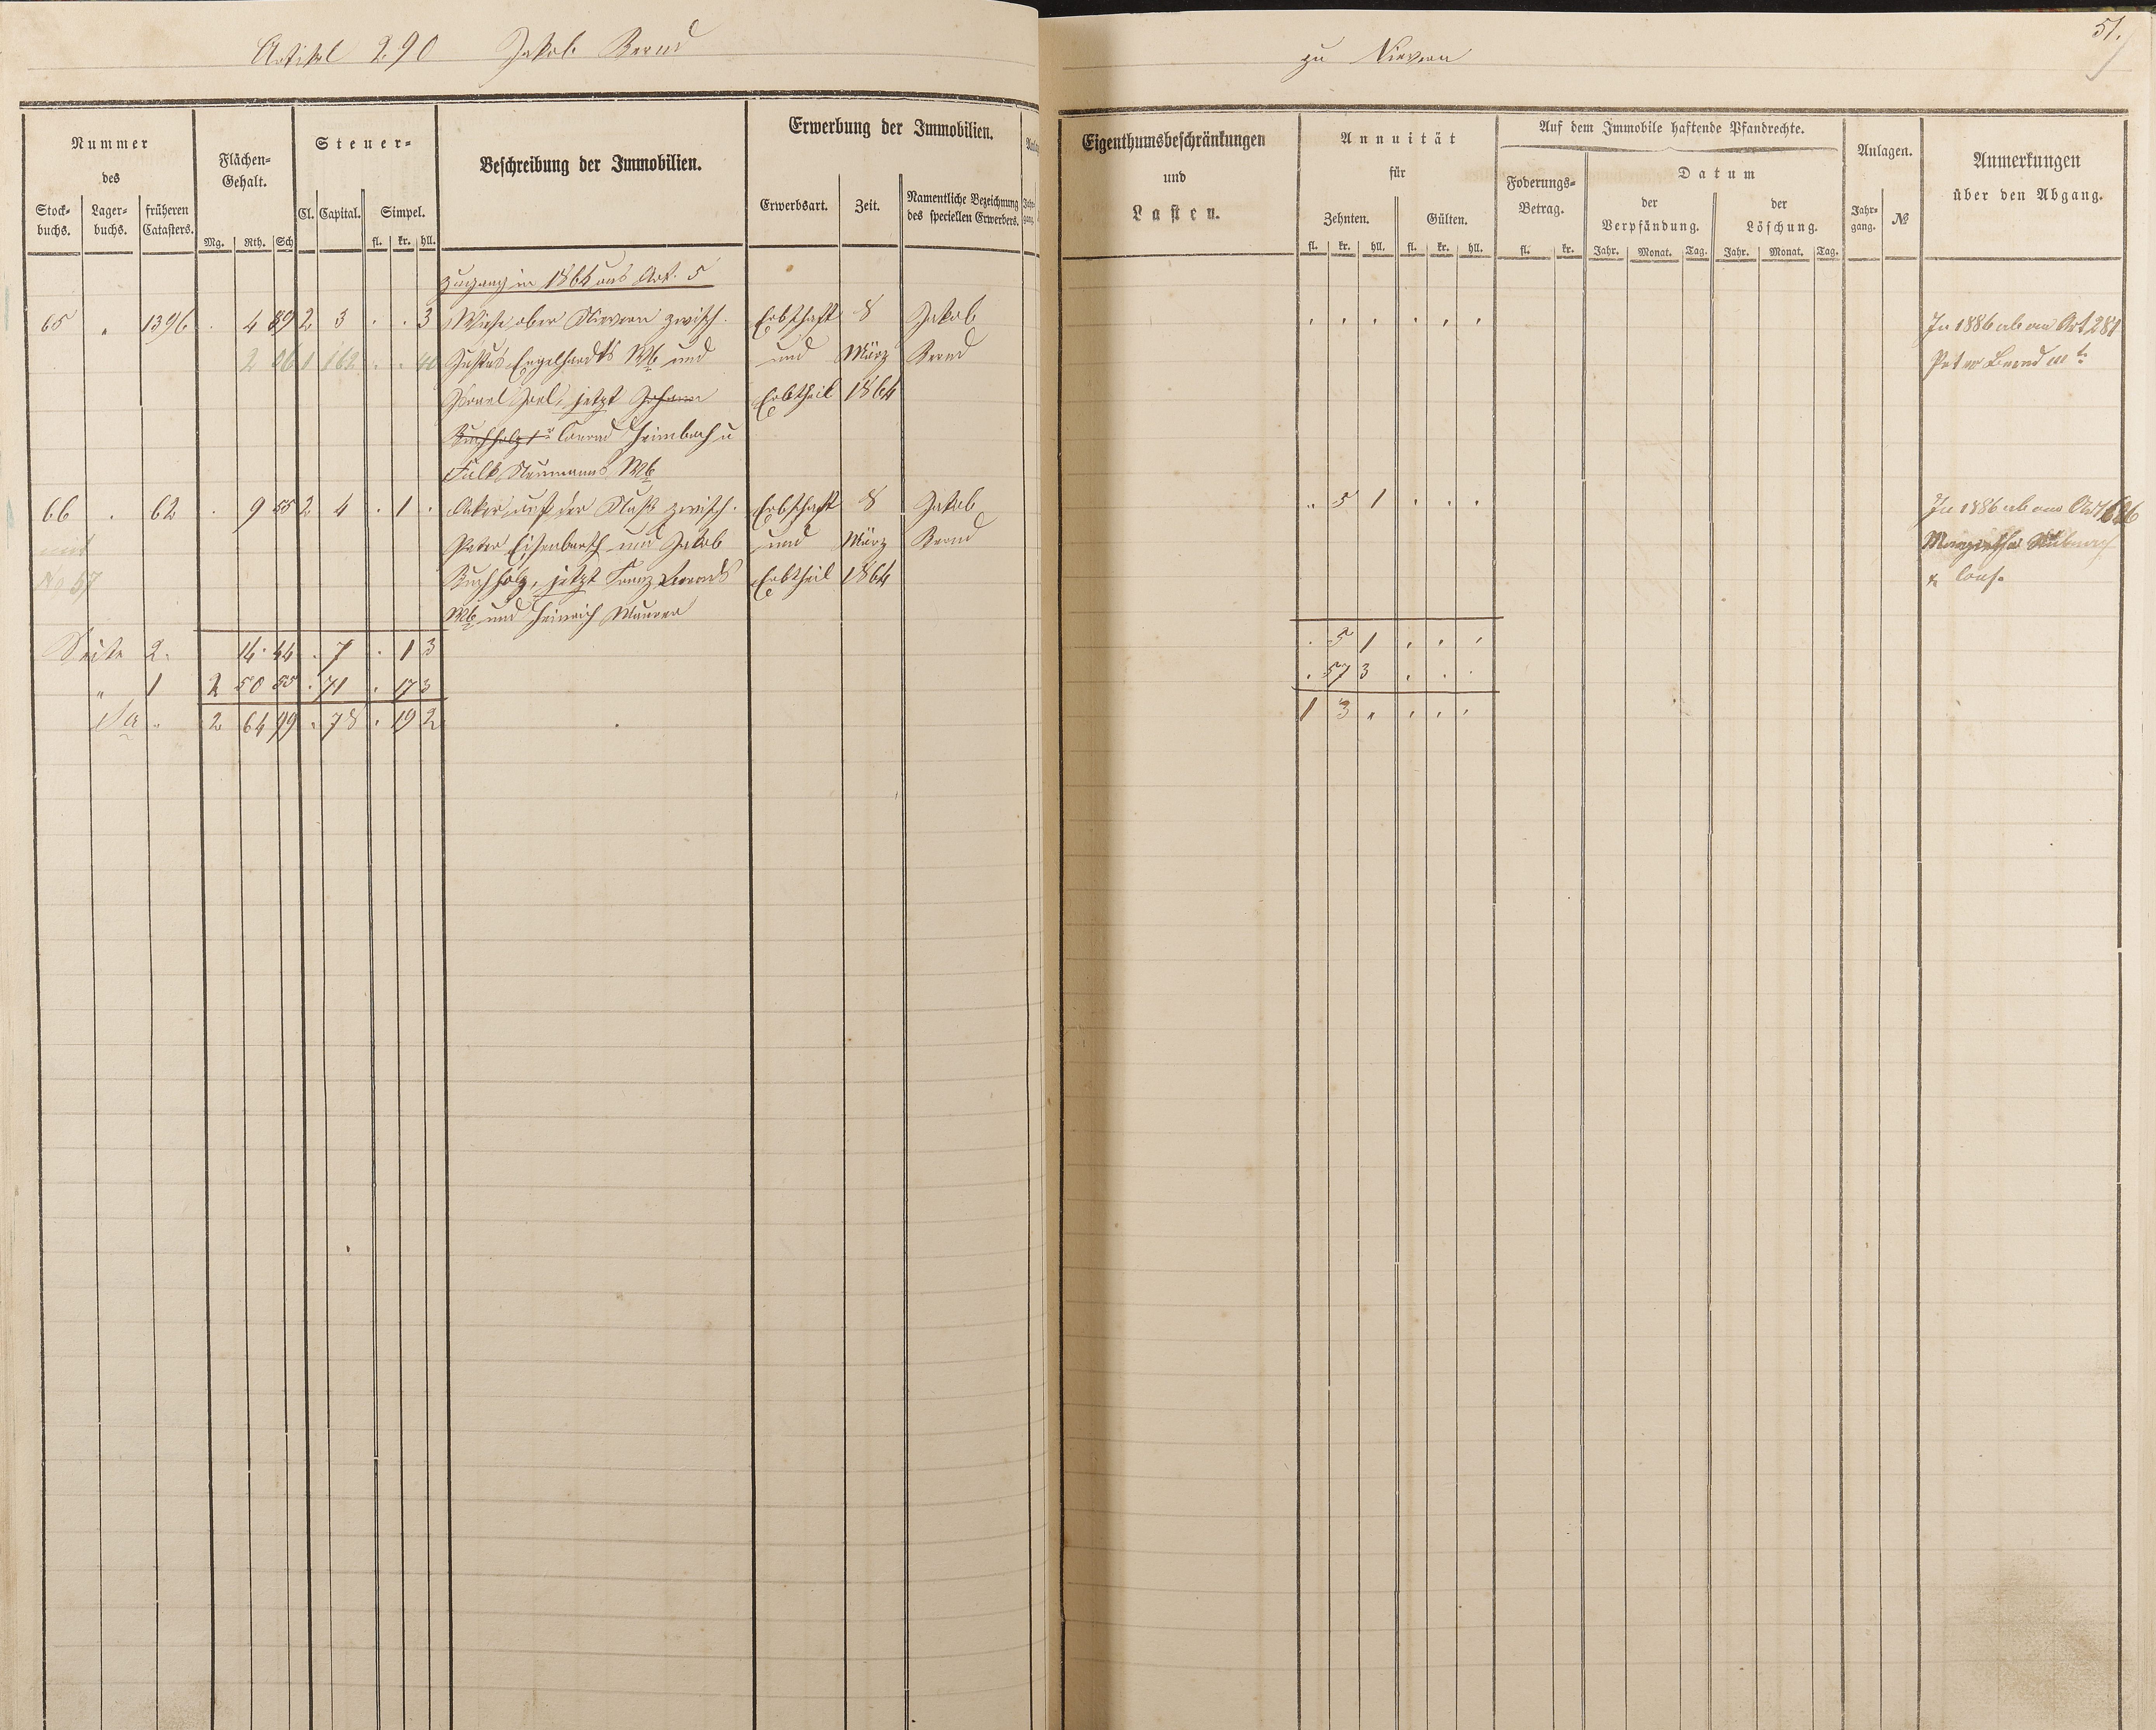 Artikel 290 Jakob Bernd
zu Nievern
51.
Nummer
des
Stock-
buchs.
Lager-
buchs.
früheren
Catasters.
Flächen-
Gehalt.
Mg. Rth. Sch
Steuer-
Cl. Capital. Simpel.
fl. kr. hll.
Beschreibung der Immobilien.
Erwerbung der Immobilien.
Erwerbsart. Zeit. Namentliche Bezeichnung
des speciellen Erwerbers.
Eigenthumsbeschränkungen
und
Lasten.
Annuität
für
Zehnten. Gülten.
fl. kr. hll. fl. kr. hll.
Auf dem Immobile haftende Pfandrechte.
Foderungs-
Betrag.
fl. kr.
Datum
der
Verpfändung.
der
Löschung.
Jahr. Monat. Tag. Jahr. Monat. Tag.
Anlagen.
Jahr-
gang. №
Anmerkungen
über den Abgang.
Zugang in 1864 aus Art. 5
65 „ 1396 . 4 89 2 3 . . 3 Wiese ober Nievern zwisch. Erbschaft 8 Jakob . . . . . . In 1886 ab an Art 281
2 06 1 162 . . 40 Justus Engelhardts Wb und und März Bernd Peter Bernd
Israel Joel, jetzt Johann Erbtheil 1864
Buchholz 1r Conrad Heimbach u
Falk Neumanns Wb
66 . 62 . 9 55 2 4 . 1 . Acker auf der zwisch. Erbschaft 8 Jakob „ 5 1 . . . In 1886 ab an Art
mit Peter Eisenbarth und Jakob und März Bernd Margretha
No 57 Buchholz, jetzt Franz Bernds Erbtheil 1864 & Cons.
Wb und Heinrich Maurer
Seite 2. 14 44 . 7 . 1 3 . 5 1 . . .
„ 1 2 50 55 . 71 . 17 3 . 57 3 . . .
Sa . 2 64 99 . 78 . 19 2 1 3 „ . . .